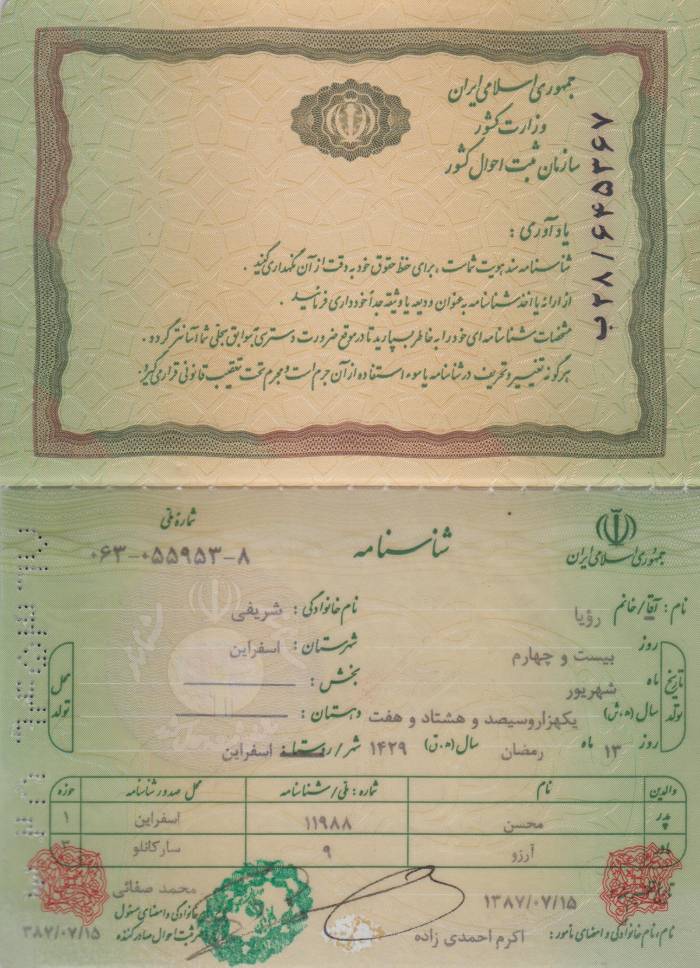 جمهوری اسلامی ایران
وزارت کشور
سازمان ثبت احوال کشور
ب۲۸/۶۴۵۲۶۷
یادآوری :
شناسنامه سند هویت شماست ، برای حفظ حقوق خود به دقت از آن نگهداری کنید .
از ارائه یا اخذ شناسنامه به عنوان ودیعه یا وثیقه جداً خودداری فرمائید .
مشخصات شناسنامه ای خود را به خاطر بسپارید تا در موقع ضرورت دسترسی به سوابق سجلی شما آسانتر گردد .
هرگونه تغییر و تحریف در شناسنامه یا سوء استفاده از آن جرم است و مجرم تحت تعقیب قانونی قرار می گیرد .
جمهوری اسلامی ایران
شناسنامه
شماره ملی
۰۶۳-۰۵۵۹۵۳-۸
نام : آقا/خانم رؤیا نام خانوادگی : شریفی
تاریخ تولد
روز بیست و چهارم
ماه شهریور
سال (ه.ش) یکهزاروسیصد و هشتاد و هفت
روز ۱۳ ماه رمضان سال (ه.ق) ۱۴۲۹
محل تولد
شهرستان : اسفراین
بخش :
دهستان :
شهر/روستا اسفراین
والدین نام شماره : ملی/شناسنامه محل صدور شناسنامه حوزه
پدر محسن ۱۱۹۸۸ اسفراین ۱
مادر آرزو ۹ سارکانلو ۳
۱۳۸۷/۰۷/۱۵
نام، نام خانوادگی و امضای مأمور : اکرم احمدی زاده
محمد صفائی
خانوادگی و امضای مسئول
ثبت احوال صادر کننده
۳۸۷/۰۷/۱۵